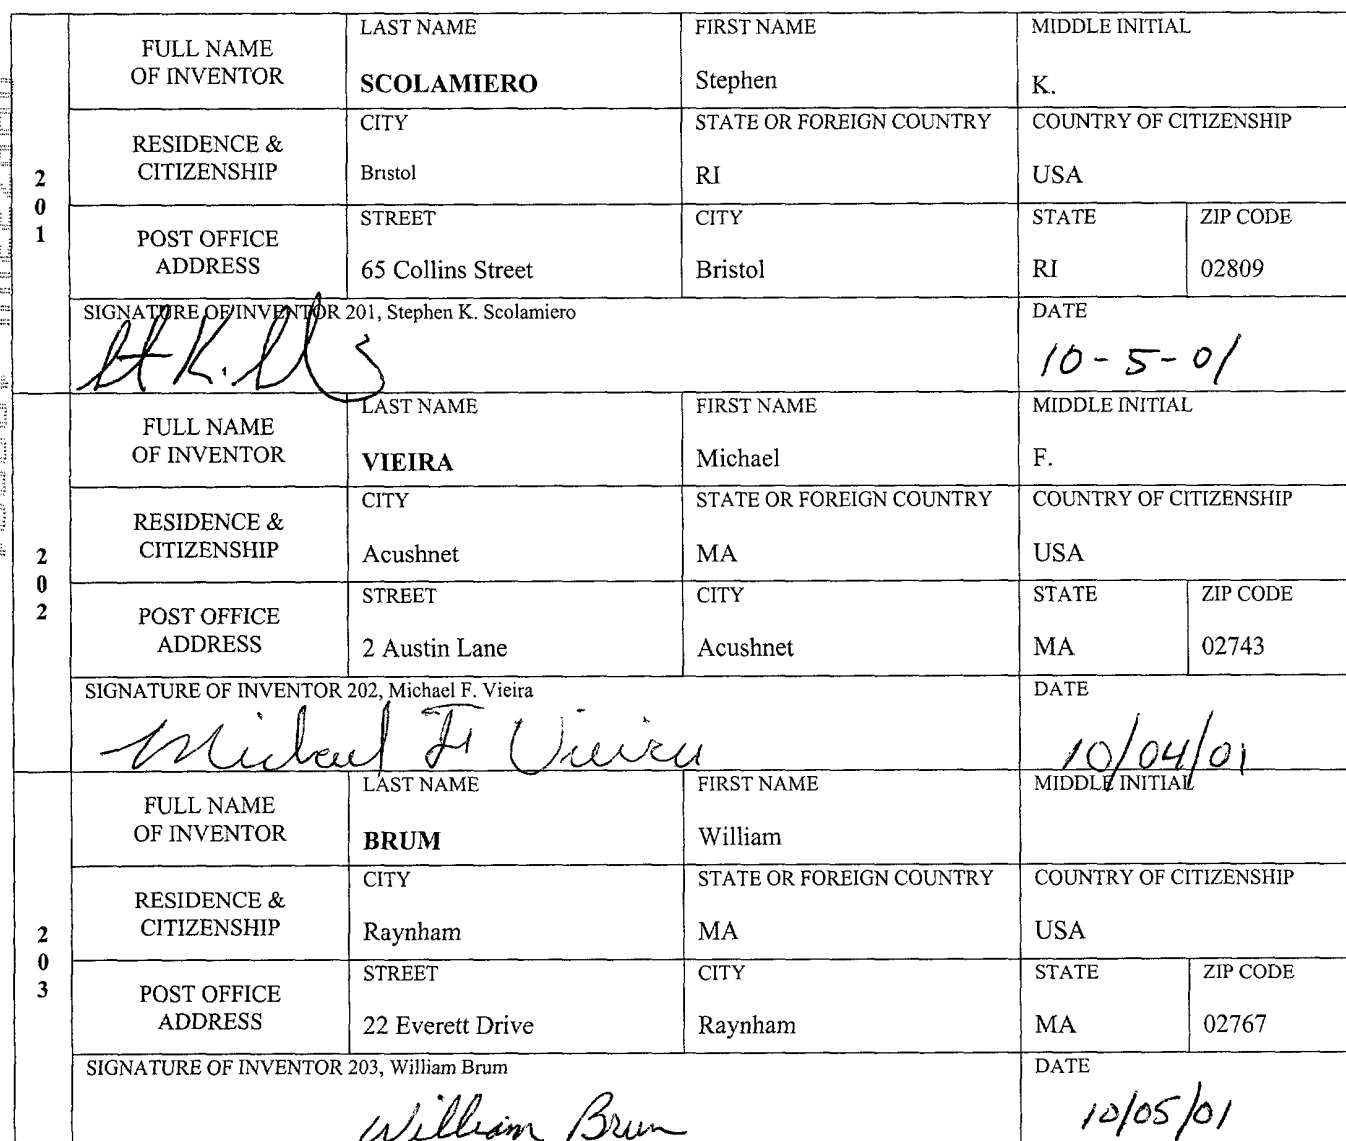 2
0
1
FULL NAME
OF INVENTOR
LAST NAME
SCOLAMIERO
FIRST NAME
Stephen
MIDDLE INITIAL
K.
RESIDENCE &
CITIZENSHIP
CITY
Bristol
STATE OR FOREIGN COUNTRY
RI
COUNTRY OF CITIZENSHIP
USA
POST OFFICE
ADDRESS
STREET
65 Collins Street
CITY
Bristol
STATE
RI
ZIP CODE
02809
SIGNATURE OF INVENTOR 201, Stephen K. Scolamiero
DATE
10-5-01
2
0
2
FULL NAME
OF INVENTOR
LAST NAME
VIEIRA
FIRST NAME
Michael
MIDDLE INITIAL
F.
RESIDENCE &
CITIZENSHIP
CITY
Acushnet
STATE OR FOREIGN COUNTRY
MA
COUNTRY OF CITIZENSHIP
USA
POST OFFICE
ADDRESS
STREET
2 Austin Lane
CITY
Acushnet
STATE
MA
ZIP CODE
02743
SIGNATURE OF INVENTOR 202, Michael F. Vieira
Michael F Vieira
DATE
10/04/01
2
0
3
FULL NAME
OF INVENTOR
LAST NAME
BRUM
FIRST NAME
William
MIDDLE INITIAL
RESIDENCE &
CITIZENSHIP
CITY
Raynham
STATE OR FOREIGN COUNTRY
MA
COUNTRY OF CITIZENSHIP
USA
POST OFFICE
ADDRESS
STREET
22 Everett Drive
CITY
Raynham
STATE
MA
ZIP CODE
02767
SIGNATURE OF INVENTOR 203, William Brum
William Brum
DATE
10/05/01